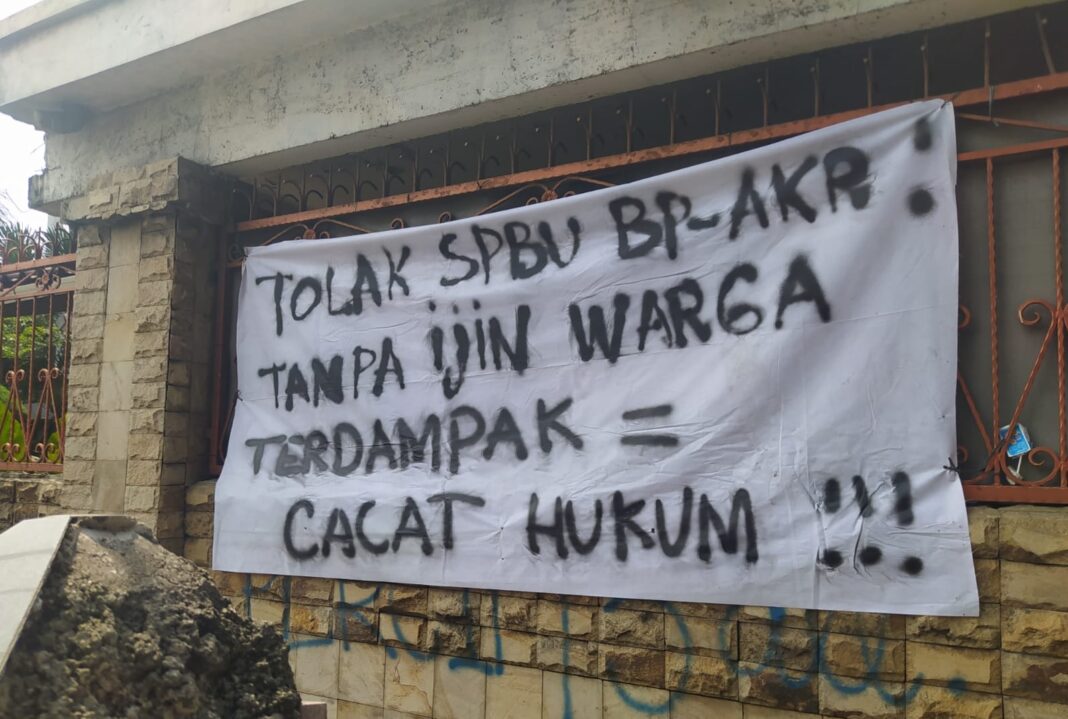 TOLAK SPBU BP-AKR :
TANPA ijiN WARGA
TERDAMPAK =
CACAT HUKUM !!!